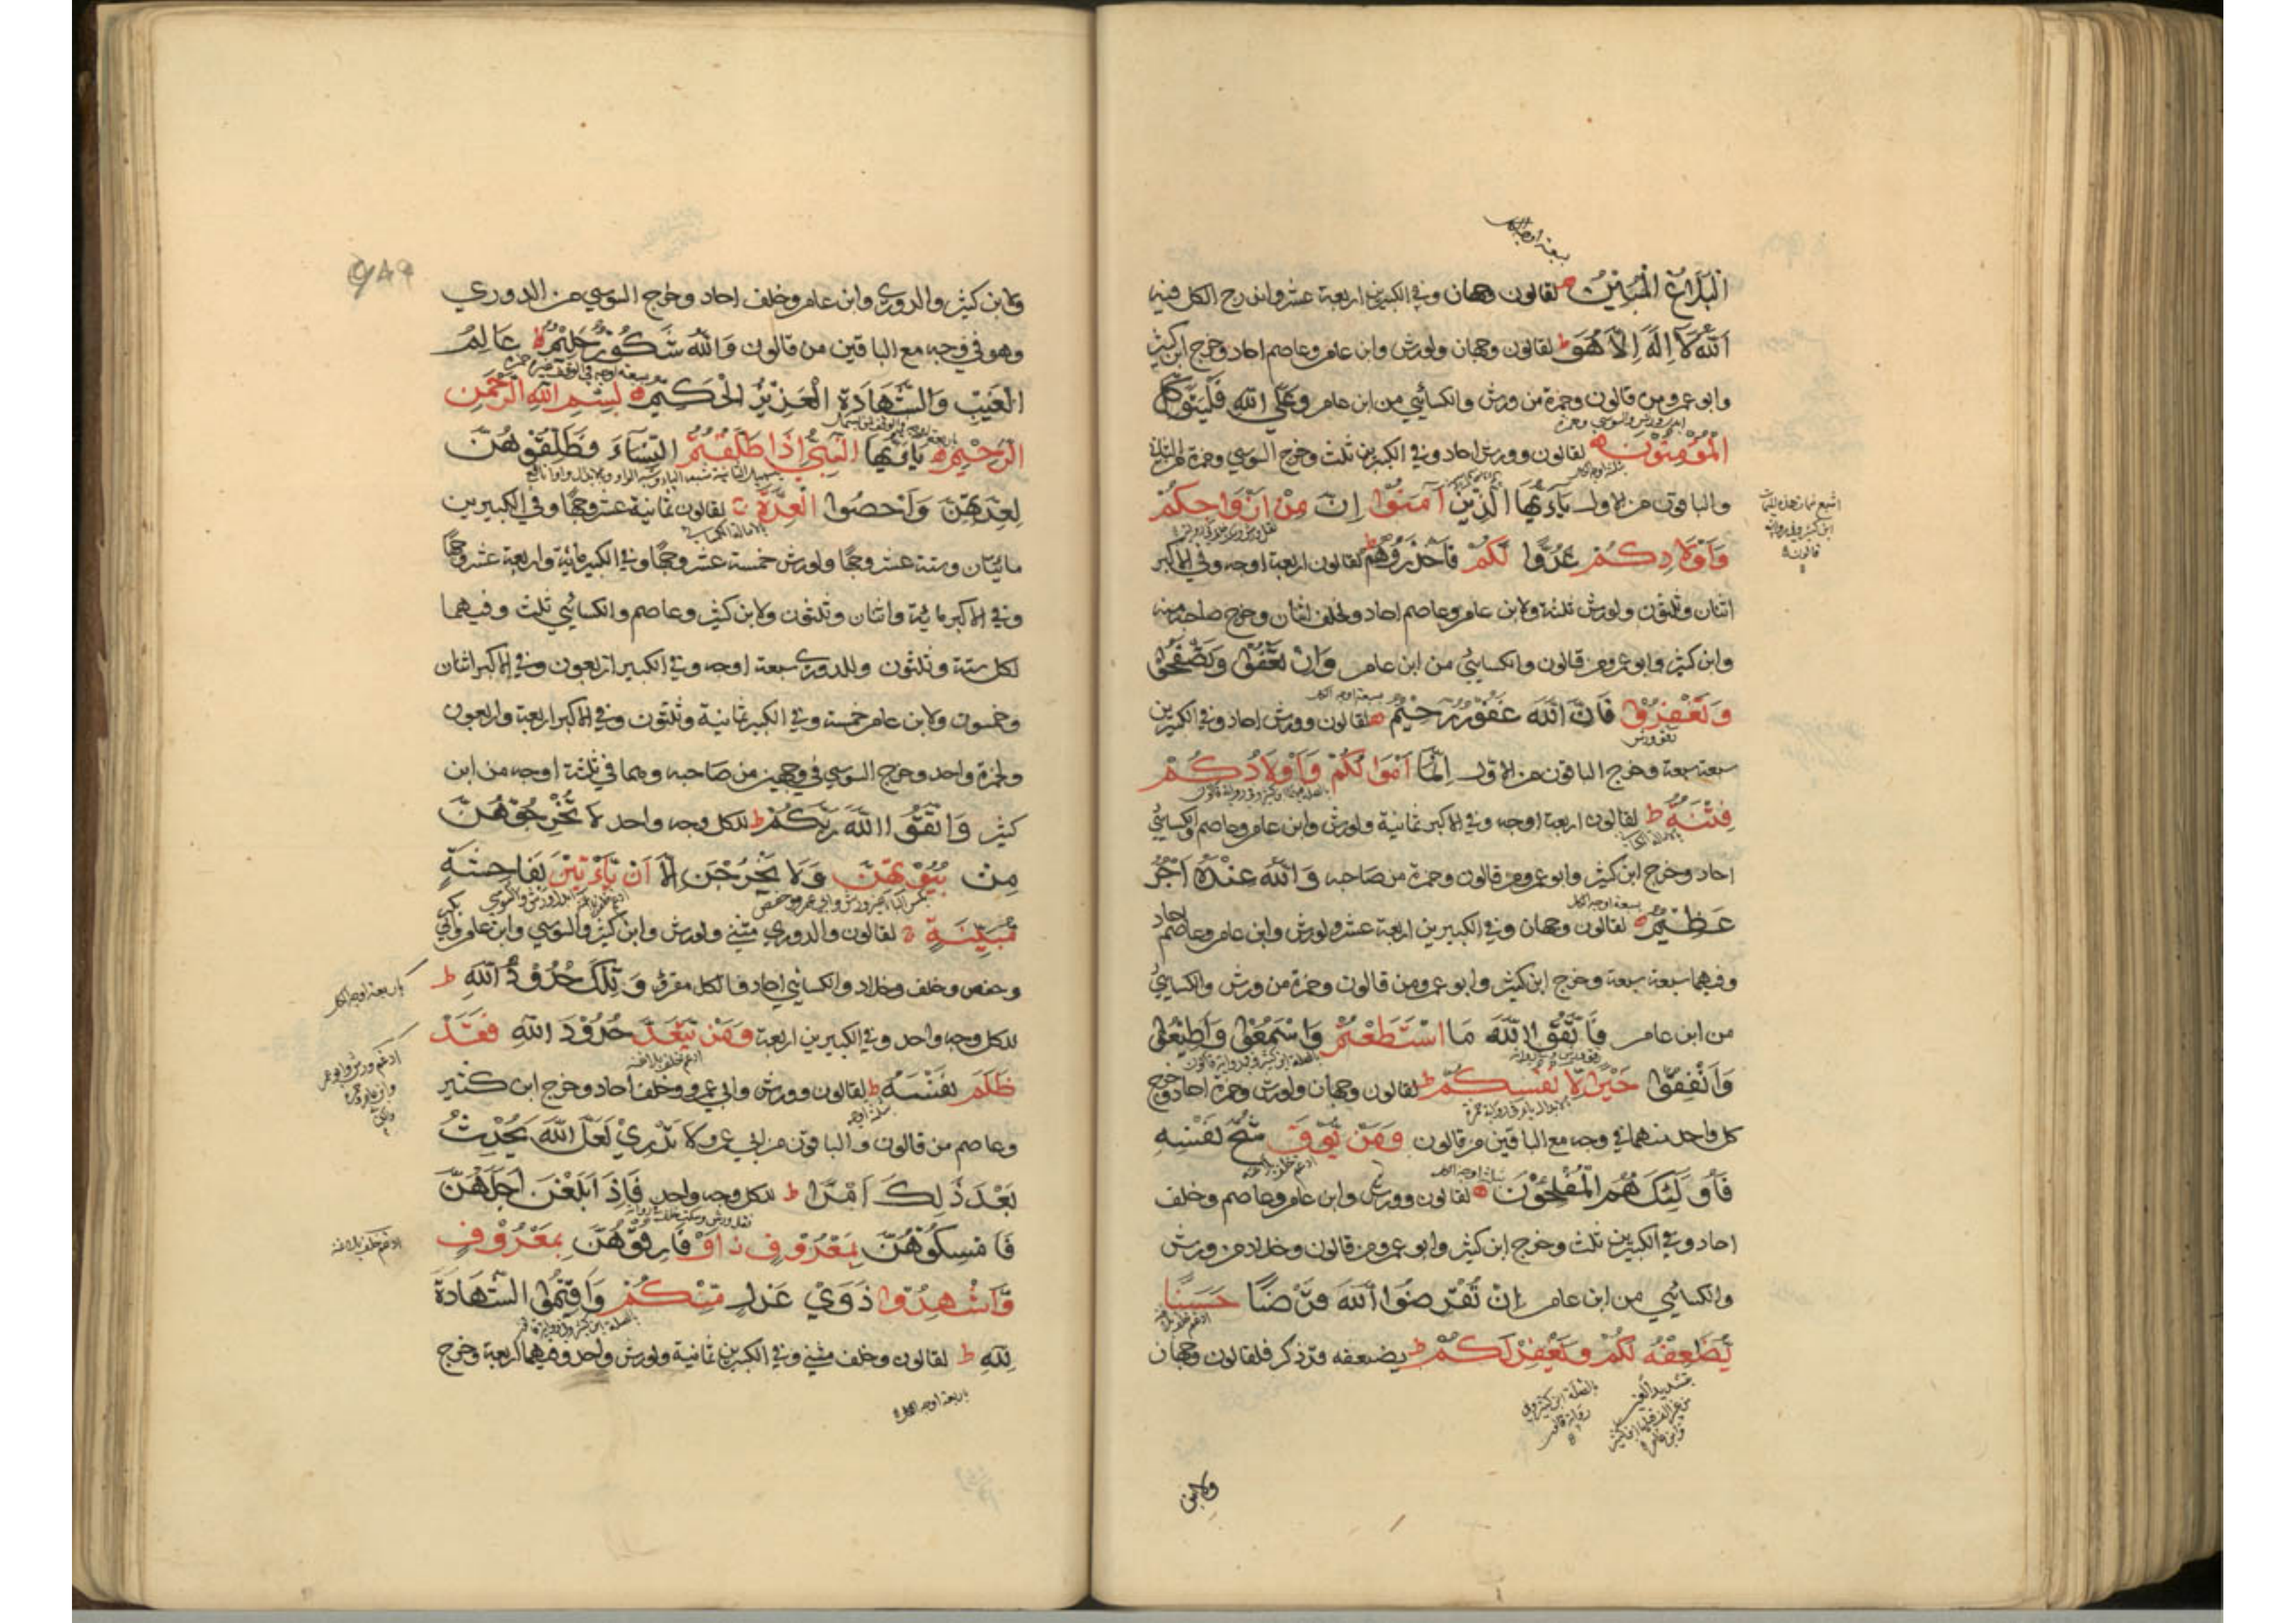 سبعة اوجه للكل
البَلَاغُ المُبِيْنُ لقالون وجهان وفي الكبيرين اربعة عشر واندرج الكل فيه
اَللّٰهُ لَا اِلٰهَ اِلَّا هُوَ ط لقالون وجهان ولورش وابن عامر وعاصم احاد وخرج ابن كثير
وابو عمرو من قالون وحمزة من ورش والكسائي من ابن عامر وعَلَى اللّٰهِ فَلْيَتَوَكَّلِ
المُؤْمِنُوْنَ لقالون وورش احاد وفي الكبيرين ثلث وخرج السوسي وحمزة
والباقون من الاول يٰاَيُّهَا الَّذِيْنَ اٰمَنُوْا اِنَّ مِنْ اَزْوَاجِكُمْ
وَاَوْلَادِكُمْ عَدُوًّا لَكُمْ فَاحْذَرُوْهُمْ ط لقالون اربعة اوجه وفي الاكبر
اثنان وثلثون ولورش ثلثة ولابن عامر وعاصم احاد ولخلف اثنان وخرج صاحبه منه
وابن كثير وابو عمرو من قالون والكسائي من ابن عامر وَاِنْ تَعْفُوْا وَتَصْفَحُوْا
سبعة اوجه للكل
وَتَغْفِرُوْا فَاِنَّ اللّٰهَ غَفُوْرٌ رَحِيْمٌ لقالون وورش احاد وفي الكبيرين
سبعة سبعة وخرج الباقون من الاول اِنَّمَا اَمْوَالُكُمْ وَاَوْلَادُكُمْ
فِتْنَةٌ ط لقالون اربعة اوجه وفي الاكبر ثمانية ولورش وابن عامر وعاصم والكسائي
احاد وخرج ابن كثير وابو عمرو من قالون وحمزة من صاحبه وَاللّٰهُ عِنْدَهُ اَجْرٌ
سبعة اوجه للكل
عَظِيْمٌ لقالون وجهان وفي الكبيرين اربعة عشر ولورش وابن عامر وعاصم احاد
وفيهما سبعة سبعة وخرج ابن كثير وابو عمرو من قالون وحمزة من ورش والكسائي
من ابن عامر فَاتَّقُوا اللّٰهَ مَا اسْتَطَعْتُمْ وَاسْمَعُوْا وَاَطِيْعُوْا
وَاَنْفِقُوْا خَيْرًا لِاَنْفُسِكُمْ ط لقالون وجهان ولورش وحمزة احاد وخرج
كل واحد منهما في وجه مع الباقين من قالون وَمَنْ يُوْقَ شُحَّ نَفْسِهِ
فَاُولٰئِكَ هُمُ الْمُفْلِحُوْنَ لقالون وورش وابن عامر وعاصم وخلف
احاد وفي الكبيرين ثلث وخرج ابن كثير وابو عمرو من قالون وخلاد من ورش
والكسائي من ابن عامر اِنْ تُقْرِضُوا اللّٰهَ قَرْضًا حَسَنًا
يُضٰعِفْهُ لَكُمْ وَيَغْفِرْ لَكُمْ ط يضعفه قد ذكر فلقالون وجهان
ولابن
٩٨٩
ولابن كثير والدوري وابن عامر وخلف احاد وخرج السوسي من الدوري
وهو في وجه مع الباقين من قالون وَاللّٰهُ شَكُوْرٌ حَلِيْمٌ عَالِمُ
الغَيْبِ وَالشَّهَادَةِ الْعَزِيْزُ الْحَكِيْمُ بِسْمِ اللّٰهِ الرَّحْمٰنِ
الرَّحِيْمِ يٰاَيُّهَا النَّبِيُّ اِذَا طَلَّقْتُمُ النِّسَاءَ فَطَلِّقُوْهُنَّ
لِعِدَّتِهِنَّ وَاَحْصُوا الْعِدَّةَ لقالون ثمانية عشر وجها وفي الكبيرين
مائتان وستة عشر وجها ولورش خمسة عشر وجها وفي الكبير مائة واربعة عشر وجها
وفي الاكبر مائة واثنان وثلثون ولابن كثير وعاصم والكسائي ثلث وفيهما
لكل ستة وثلثون وللدوري سبعة اوجه وفي الكبير اربعون وفي الاكبر اثنان
وخمسون ولابن عامر خمسة وفي الكبير ثمانية وثلثون وفي الاكبر اربعة واربعون
ولحمزة واحد وخرج السوسي في وجهين من صاحبه وهما في ثلثة اوجه من ابن
كثير وَاتَّقُوا اللّٰهَ رَبَّكُمْ ط للكل وجه واحد لَا تُخْرِجُوْهُنَّ
مِنْ بُيُوْتِهِنَّ وَلَا يَخْرُجْنَ اِلَّا اَنْ يَأْتِيْنَ بِفَاحِشَةٍ
مُبَيِّنَةٍ لقالون والدوري مثنى ولورش وابن كثير والسوسي وابن عامر وابي بكر
وحفص وخلف وخلاد والكسائي احاد فالكل مقرؤ وَتِلْكَ حُدُوْدُ اللّٰهِ ط
اربعة اوجه للكل
للكل وجه واحد وفي الكبيرين اربعة وَمَنْ يَتَعَدَّ حُدُوْدَ اللّٰهِ فَقَدْ
ظَلَمَ نَفْسَهُ ط لقالون وورش وابي عمرو وخلف احاد وخرج ابن كثير
وعاصم من قالون والباقون من ابي عمرو لَا تَدْرِيْ لَعَلَّ اللّٰهَ يُحْدِثُ
بَعْدَ ذٰلِكَ اَمْرًا ط للكل وجه واحد فَاِذَا بَلَغْنَ اَجَلَهُنَّ
فَاَمْسِكُوْهُنَّ بِمَعْرُوْفٍ اَوْ فَارِقُوْهُنَّ بِمَعْرُوْفٍ
ادغم خلف بلا غنة
وَاَشْهِدُوْا ذَوَيْ عَدْلٍ مِنْكُمْ وَاَقِيْمُوا الشَّهَادَةَ
لِلّٰهِ ط لقالون وخلف مثنى وفي الكبيرين ثمانية ولورش واحد وفيهما اربعة وخرج
اربعة اوجه للكل